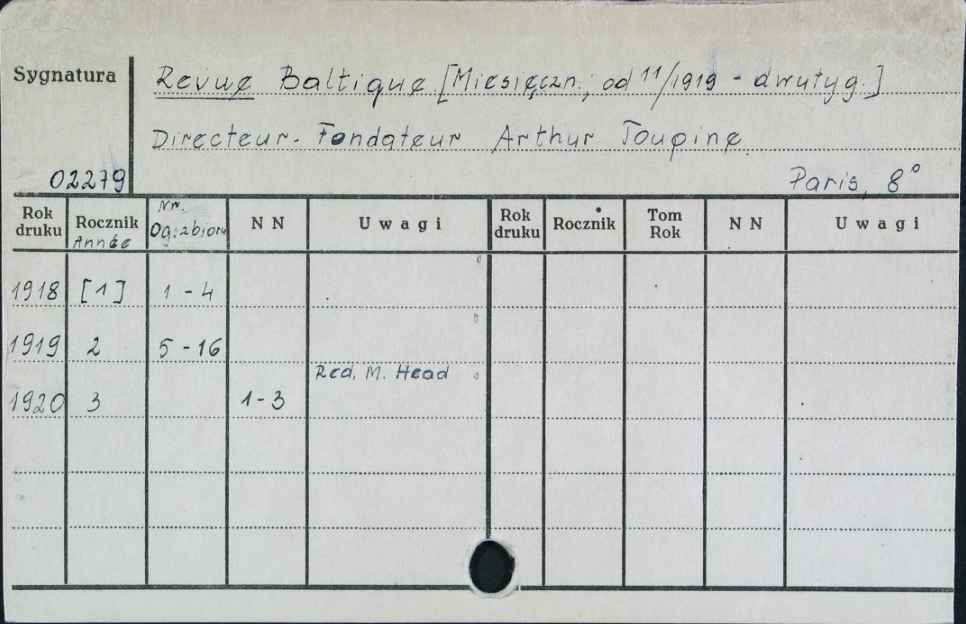 Sygnatura
Revue Baltique [Miesięczn.; od 11/1919 - dwutyg.]
Directeur-Fondateur Arthur Toupine
02279
Paris, 8°
Rok druku Rocznik Année Nr. Og. zbioru N N Uwagi Rok druku Rocznik Tom Rok N N Uwagi
1918 [1] 1 - 4
1919 2 5 - 16
Red. M. Head
1920 3 1 - 3